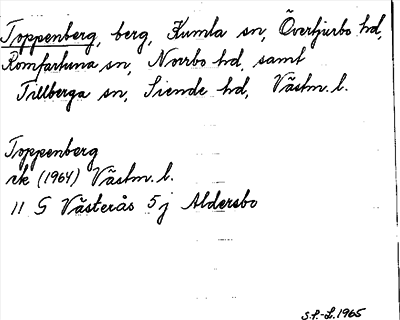 Toppenberg, berg, Kumla sn, Övertjurbo hd,
Romfartuna sn, Norrbo hd, samt
Tillberga sn, Siende hd, Västm. l.
Toppenberg
rk (1964) Västm. l.
11 G Västerås 5 j Aldersbo
S.P.-L. 1965